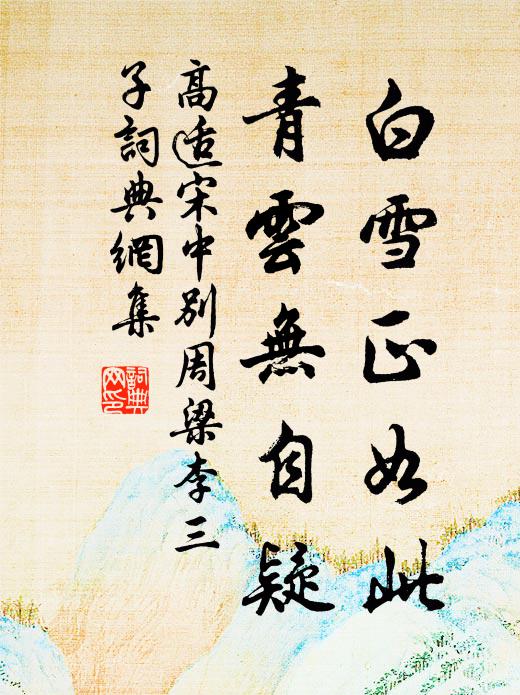 白雪正如此
青雲無自疑
高适宋中別周梁李三
子詞典網集
詞典網印